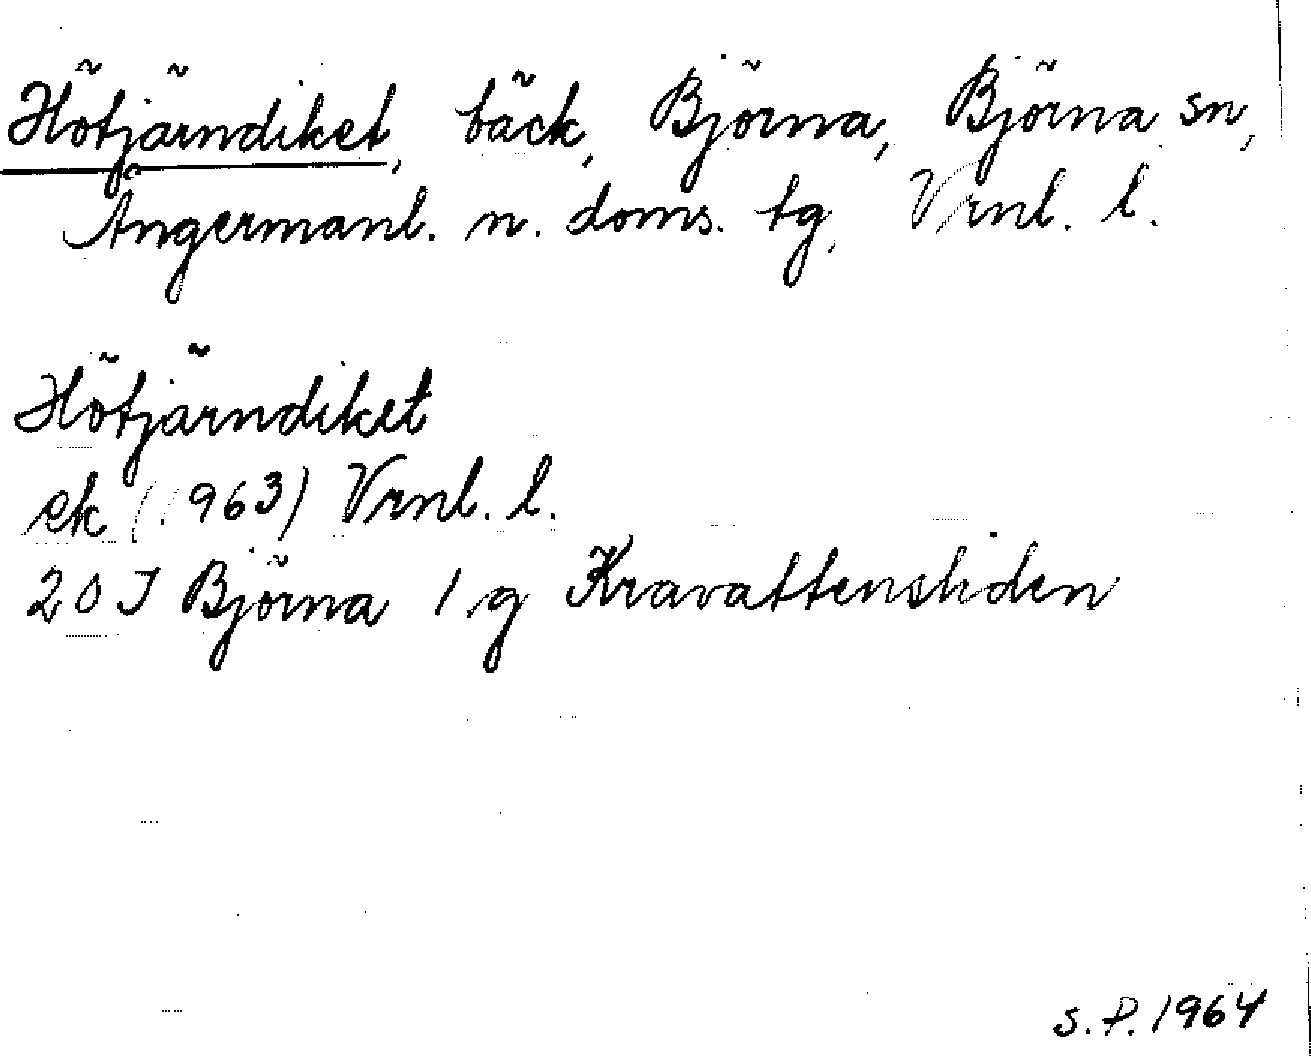 Hötjärndiket, bäck, Björna, Björna sn,
Ångermanl. n. doms. tg, Vrnl. l.
Hötjärndiket
ek (1963) Vrnl. l.
20 J Björna 1 g Kravattensliden
S.P. 1964